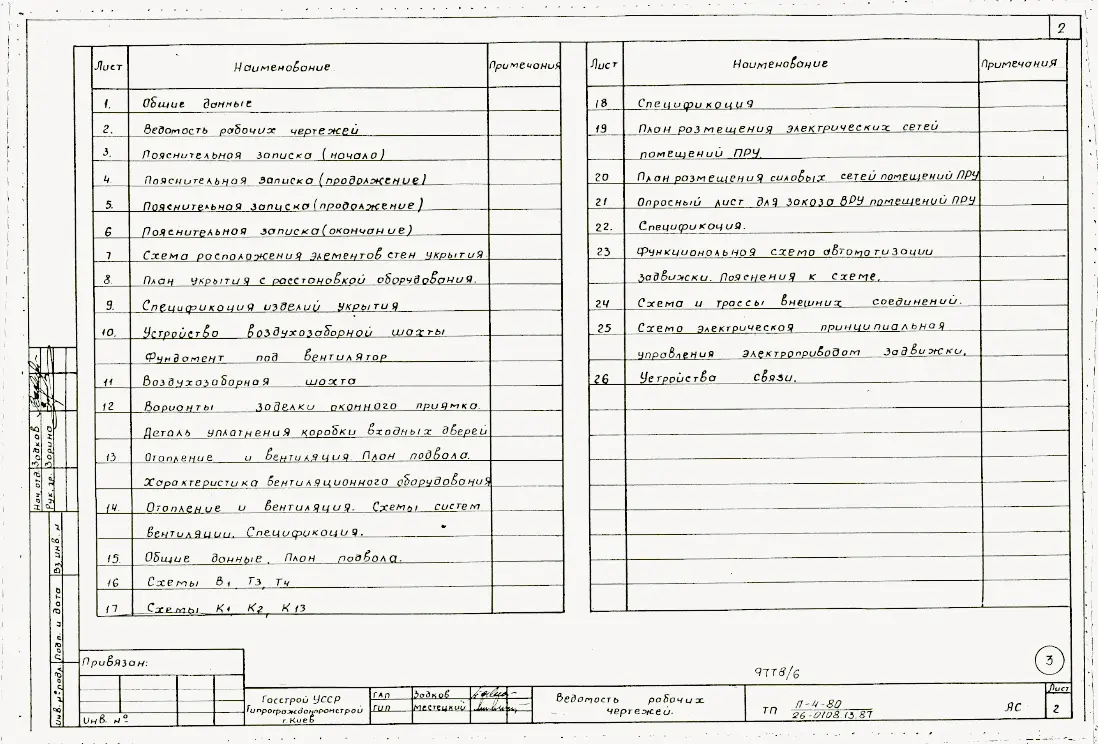 2
Лист Наименование Примечания
1. Общие данные
2. Ведомость рабочих чертежей
3. Пояснительная записка (начало)
4 Пояснительная записка (продолжение)
5. Пояснительная записка (продолжение)
6 Пояснительная записка (окончание)
7 Схема расположения элементов стен укрытия
8. План укрытия с расстановкой оборудования.
9. Спецификация изделий укрытия
10. Устройство воздухозаборной шахты
Фундамент под вентилятор
11 Воздухозаборная шахта
12 Варианты заделки оконного приямка.
Деталь уплотнения коробки входных дверей
13 Отопление и вентиляция. План подвала.
Характеристика вентиляционного оборудования
14. Отопление и вентиляция. Схемы систем
вентиляции. Спецификация.
15. Общие данные. План подвала.
16 Схемы В1, Т3, Т4
17 Схемы К1 К2, К13
Лист Наименование Примечания
18 Спецификация
19 План размещения электрических сетей
помещений ПРУ.
20 План размещения силовых сетей помещений ПРУ
21 Опросный лист для заказа ВРУ помещений ПРУ
22. Спецификация.
23 Функциональная схема автоматизации
задвижки. Пояснения к схеме.
24 Схема и трассы внешних соединений.
25 Схема электрическая принципиальная
управления электроприводом задвижки.
26 Устройства связи.
Нач. отд. Зодков
Рук. гр. Зорина
Вз. инв. №
Подп. и дата
Инв. № подл.
Привязан:
Инв. №
9778/6
3
Госстрой УССР
Гипрогражданпромстрой
г. Киев
ГАП Зодков
ГИП Местецкий
Ведомость рабочих
чертежей.
ТП П-4-80
26-0108.13.87
АС
Лист
2